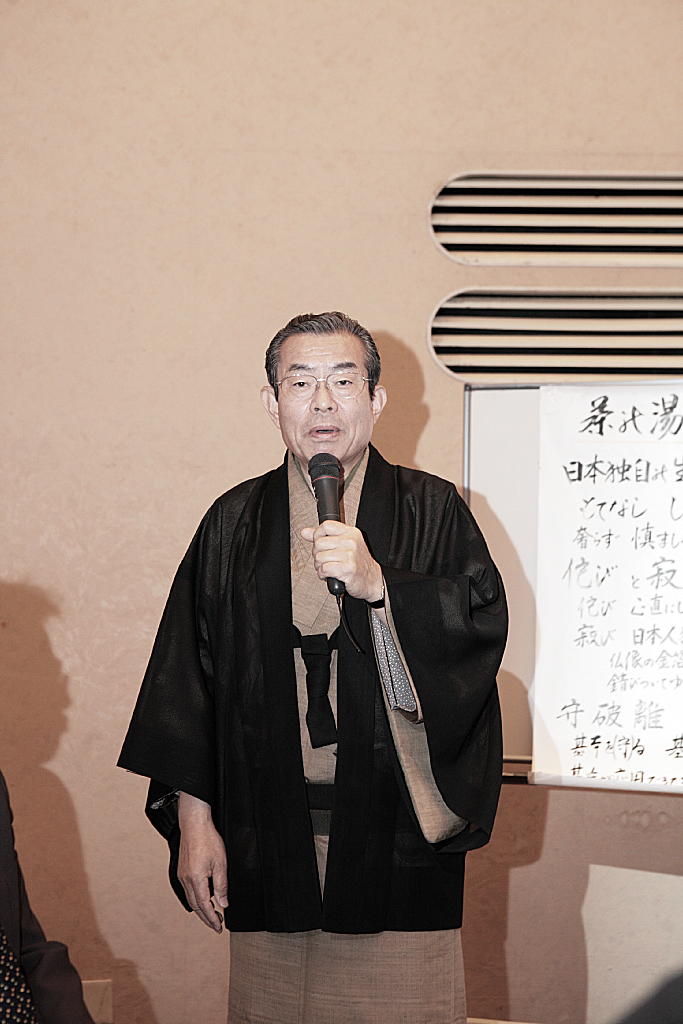 茶の湯
日本独自の生
もてなし し
奢らず 慎まし
侘び と 寂
侘び 心直にし
寂び 日本人
仏像の金箔
錆びついてゆ
守 破 離
基本を守る 基